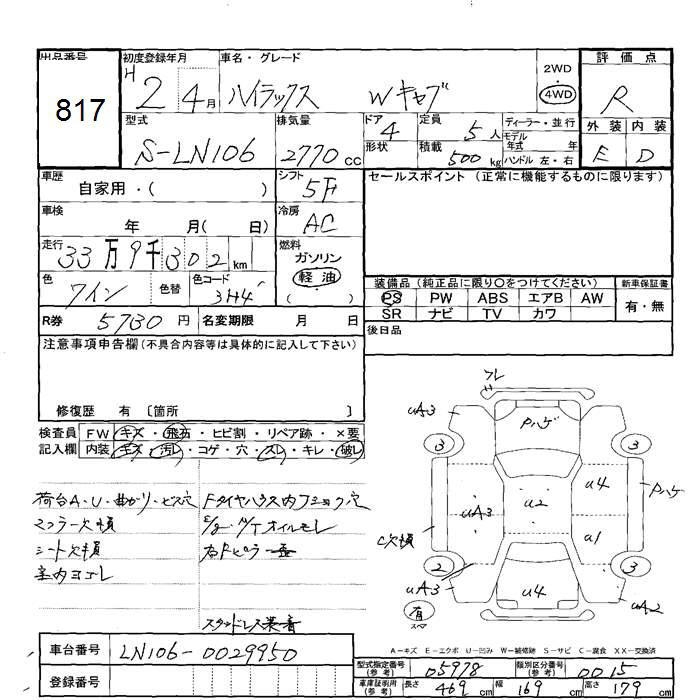 出品番号 817
初度登録年月 H 2 4月
車名・グレード ハイラックス Wキャブ
2WD ・ 4WD
評価点 R
外装 E 内装 D
型式 S-LN106
排気量 2770 cc
ドア 4 形状
定員 5人 積載 500 kg
ディーラー・並行
モデル年式 年
ハンドル 左・右
車歴 自家用・( )
シフト 5F
セールスポイント (正常に機能するものに限ります)
車検 年 月( 日)
冷房 AC
走行 33万9千302 km
燃料 ガソリン 軽油 ( )
色 ワイン 色替 色コード 3H4
装備品 (純正品に限り○をつけてください)
新車保証書 有・無
PS PW ABS エアB AW
SR ナビ TV カワ
R券 5730 円 名変期限 月 日
後日品
注意事項申告欄 (不具合内容等は具体的に記入して下さい)
修復歴 有 〔箇所 〕
検査員記入欄
FW キズ・飛石・ヒビ割・リペア跡・×要
内装 キズ・汚レ・コゲ・穴・スレ・キレ・破レ
荷台A・U・曲がり・ビス穴
マフラー欠損
シート欠損
室内ヨゴレ
オイルモレ
右Fピラー
スタッドレス装着
フレ
UA3
Pハゲ
3
3
U4
Pハゲ
UA3
U2
C欠損
U1
2
3
UA3
U4
UA2
有
A-キズ E-エクボ U-凹み W-補修跡 S-サビ C-腐食 XX-交換済
車台番号 LN106-0029950
登録番号
型式指定番号(参考) 05978 類別区分番号(参考) 0015
車庫証明用(参考) 長さ 469 cm 幅 169 cm 高さ 179 cm